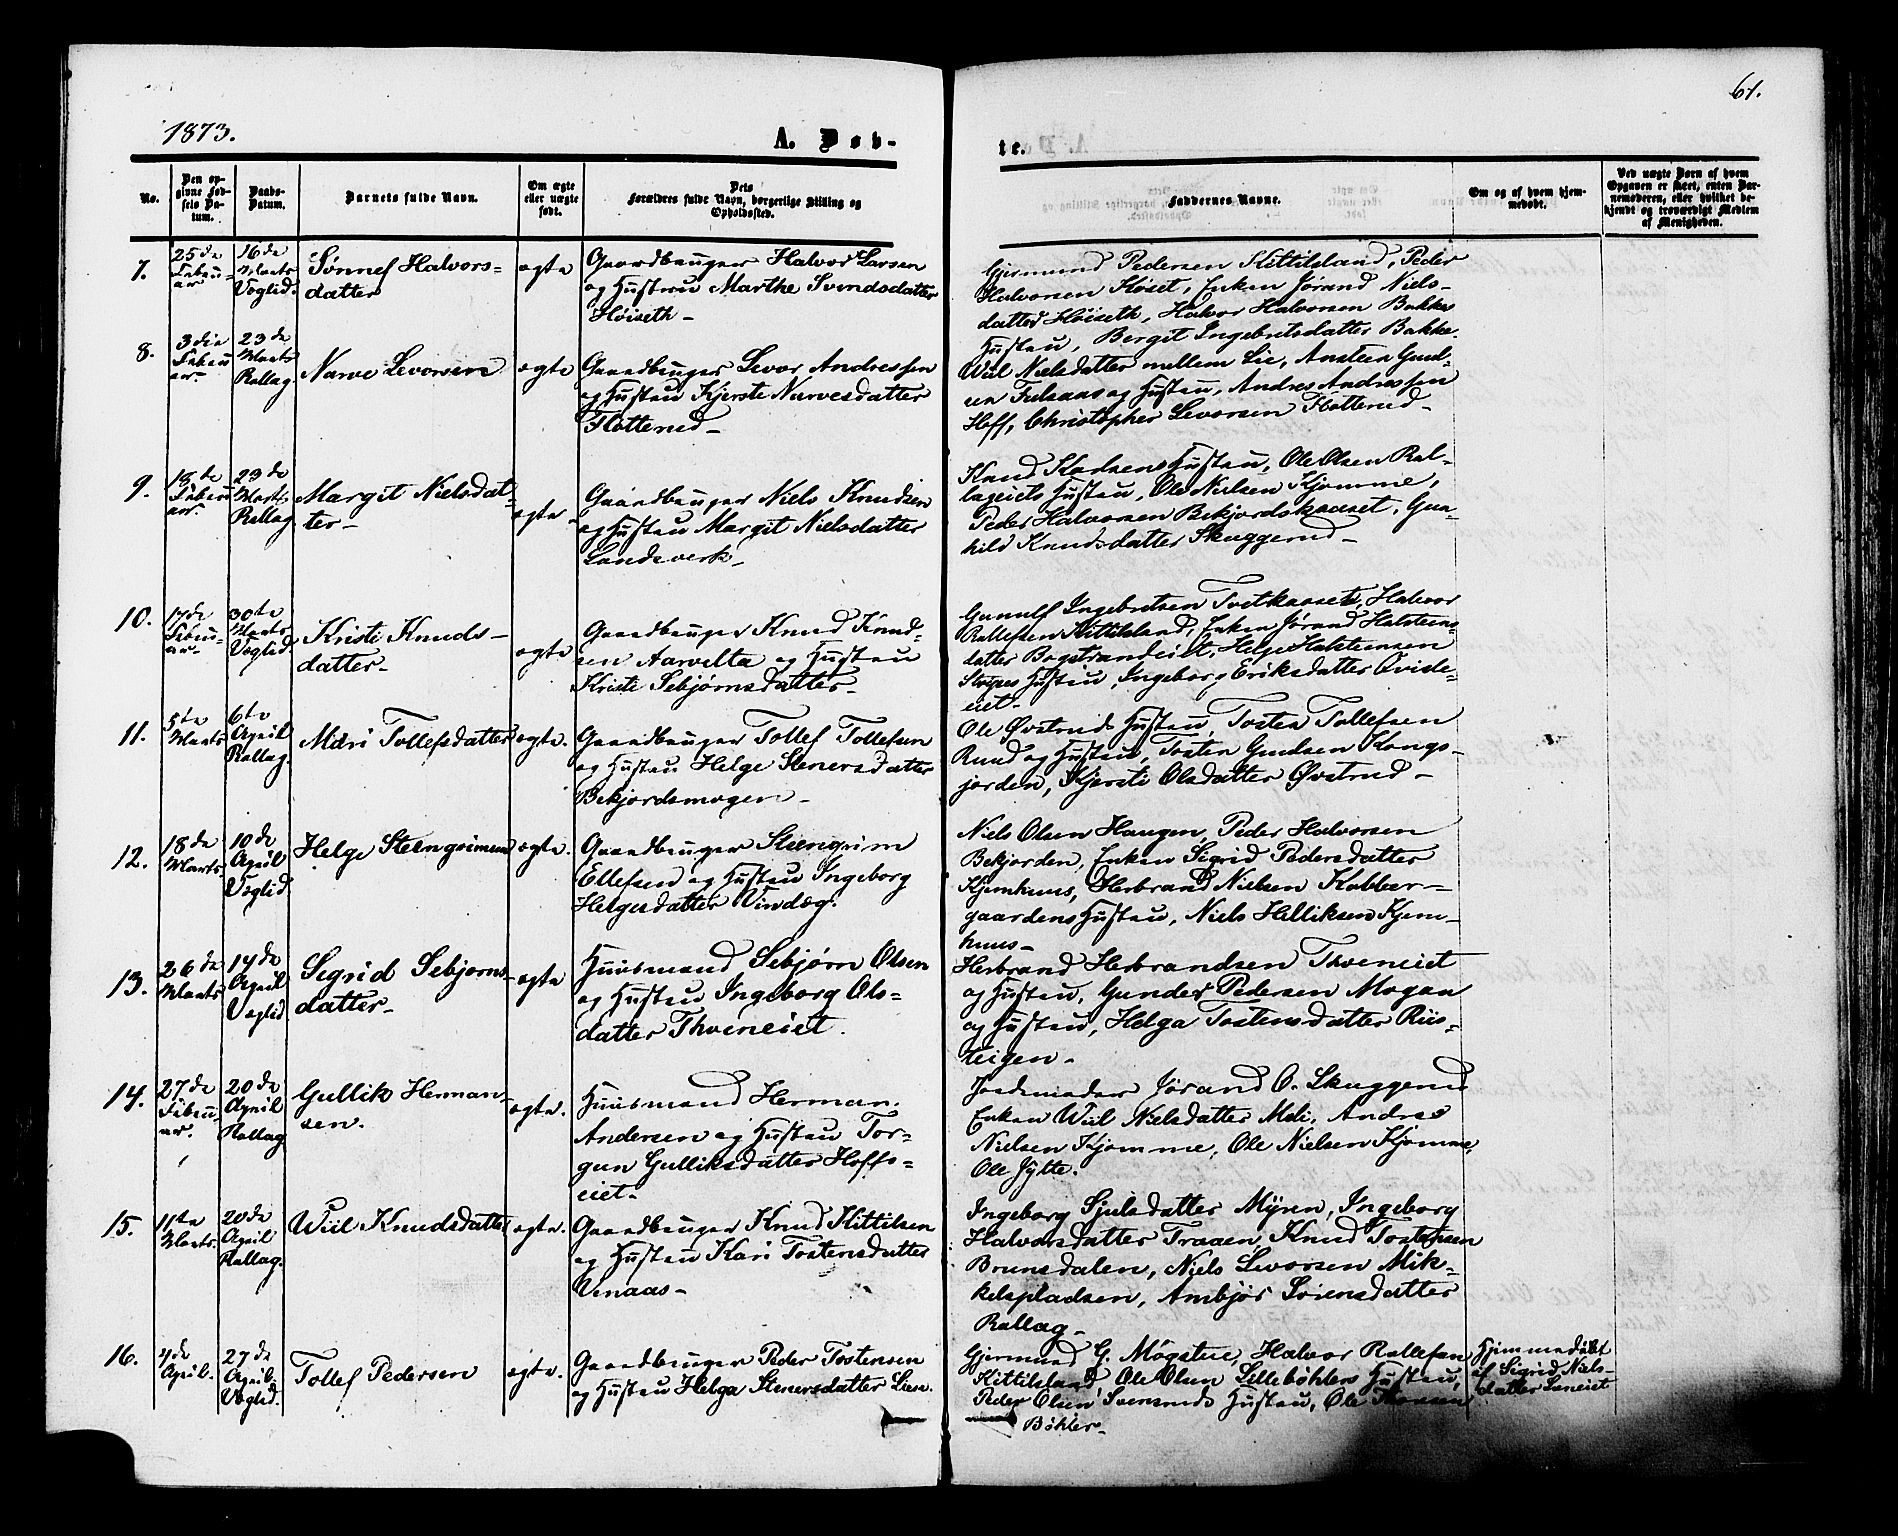 61.
1873.
A. Døb-
te.
No.
Den op-
givne Fød-
sels Da-
tum.
Daabs-
Datum.
Barnets fulde Navn.
Om ægte
eller uægte
født.
Dets
Forældres fulde Navn, borgerlige Stilling og
Opholdssted.
Faddernes Navne.
Om og af hvem hjem-
medøbt.
Ved uægte Børn af hvem
Opgaven er skeet, enten Bar-
nemoderen, eller hvilket be-
kjendt og troværdigt Medlem
af Menigheden.
7.
25de
Februar
16de
Marts
Væglid.
Sønnef Halvors-
datter
ægte
Gaardbruger Halvor Larsen
og Hustru Marthe Svendsdatter
Høiseth-
Gjermund Pedersen Kittilsland, Peder
Halvorsen Kløset, Enken Jørand Niels-
datter Høiseth, Halvor Halvorsen Bakkes
Hustru, Bergit Ingebretsdatter Bakke.
8.
3die
Februar.
23de
Marts
Rollag.
Narve Levorsen
ægte
Gaardbruger Levor Andressen
og Hustru Kjersti Narvesdatter
Flotterud-
Wiil Nielsdatter mellem Lie, Ansteen Gund-
sen Fulsaas og Hustru, Andres Andressen
Hoff, Christopher Levorsen Flotterud-
9.
18te
Februar.
23de
Marts.
Rollag.
Margit Nielsdat-
ter-
ægte-
Gaardbruger Niels Knudsen
og Hustru Margit Nielsdatter
Landsverk-
Knud Hustru, Ole Olsen Rol-
lageiets Hustru, Ole Nielsen Kjomme,
Peder Halvorsen Bekjordskaaset, Gun-
hild Knudsdatter Skuggerud-
10.
17de
Februar.
30te
Marts
Væglid
Kristi Knuds-
datter-
ægte
Gaardbruger Knud Knud-
sen Aarvelta og Hustru
Kristi Sebjørnsdatter-
Gunulf Ingebretsen Tveitkaaset, Halvor
Rollefsen Kittilsland, Enken Jørand Halsteens-
datter Bogstrandeiet, Helge Halsteensen
Hustru, Ingeborg Eriksdatter Qvisle-
eiet-
11.
5te
Marts
6te
April
Rollag.
Mari Tollefsdatter
ægte.
Gaardbruger Tollef Tollefsen
og Hustru Helge Stenersdatter
Bekjordsmogen-
Ole Øvstruds Hustru, Tosten Tollefsen
Ruud og Hustru, Tosten Gundsen Kongs-
jorden, Kjersti Olsdatter Øvstrud-
12.
18de
Marts
10de
April
Væglid.
Helge Steengrimsen
ægte.
Gaardbruger Steengrim
Ellefsen og Hustru Ingeborg
Helgesdatter Vindeg.
Niels Olsen Haugen, Peder Halvorsen
Bekjorden, Enken Sigrid Pedersdatter
Kjemhuus, Herbrand Nielsen Kobber-
gaardens Hustru, Niels Helliksen Kjem-
huus-
13.
26de
Marts
14de
April
Væglid
Sigrid Sebjørns-
datter-
ægte
Huusmand Sebjørn Olsen
og Hustru Ingeborg Ols-
datter Thveneiet.
Herbrand Herbrandsen Thveneiet
og Hustru, Gunder Pedersen Mogan
og Hustru, Helga Tostensdatter Riis-
teigen-
14.
27de
Februar.
20de
April
Rollag
Gullik Herman-
sen.
ægte.
Huusmand Herman
Andersen og Hustru Tor-
gun Gulliksdatter Hoffs-
eiet-
Jordemoder Jørand O. Skuggerud
Enken Wiil Nielsdatter Moli, Andres
Nielsen Kjomme, Ole Nielsen Kjomme,
Ole Jytte.
15.
11te
Marts.
20de
April
Rollag.
Wiil Knudsdatter
ægte.
Gaardbruger Knud Kittilsen
og Hustru Kari Tostensdatter
Vinaas-
Ingeborg Sjulsdatter Myren, Ingeborg
Halvorsdatter Traaen, Knud Tostensen
Brunsdalen, Niels Levorsen Mik-
kelspladsen, Ambjør Sørensdatter
Rollag-
16.
4de
April.
27de
April.
Væglid.
Tollef Pedersen
ægte.
Gaardbruger Peder Tostensen
og Hustru Helga Stenersdatter Lien.
Gjermund G. Møgstue, Halvor Rollefsen
Kittilsland, Ole Olsen Lillebøhlers Hustru,
Peder Olsen Svensruds Hustru, Ole Thorsen
Bøhler-
Hjemmedøbt
af Sigrid Niels-
datter Lieneiet